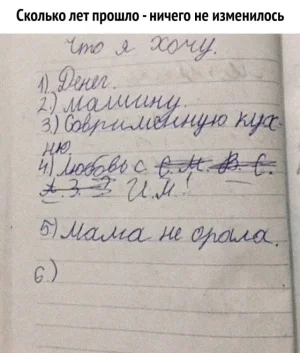 Сколько лет прошло - ничего не изменилось
Что я хочу.
1) Денег.
2) машину.
3.) Современную кух-
ню.
4) Любовь с С. М. В. С.
А. З. З. И.М!
5) Мама не орала.
6.)